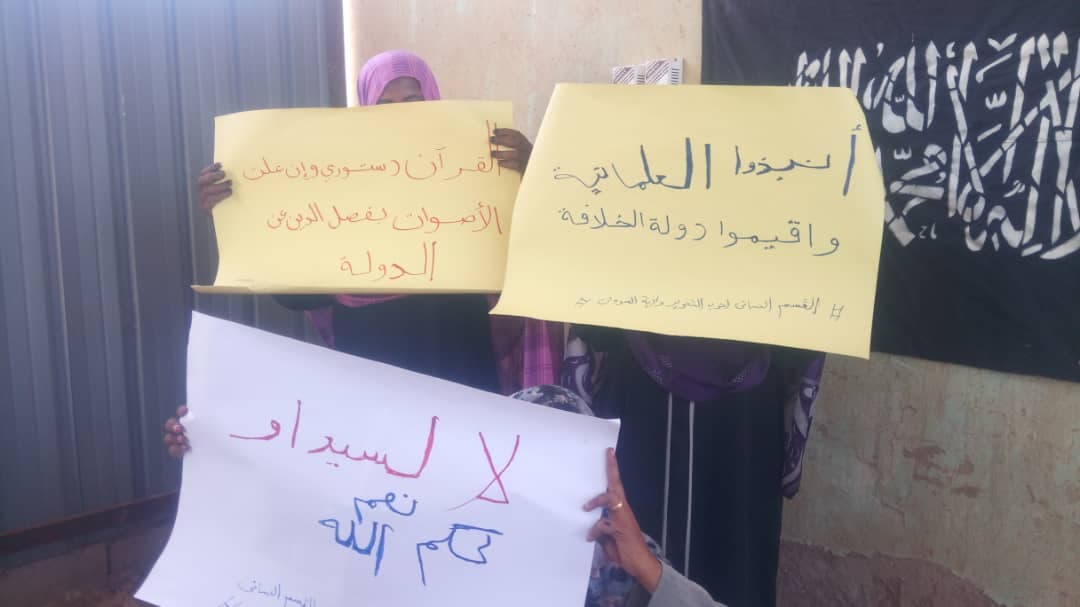 القرآن دستوري وإن علت
الأصوات بفصل الدين عن
الدولة
أنبذوا العلمانية
واقيموا دولة الخلافة
# القسم النسائي لحزب التحرير ولاية السودان
لا لسيداو
نعم
لحكم الله
القسم النسائي
لا إله إلا الله محمد رسول الله